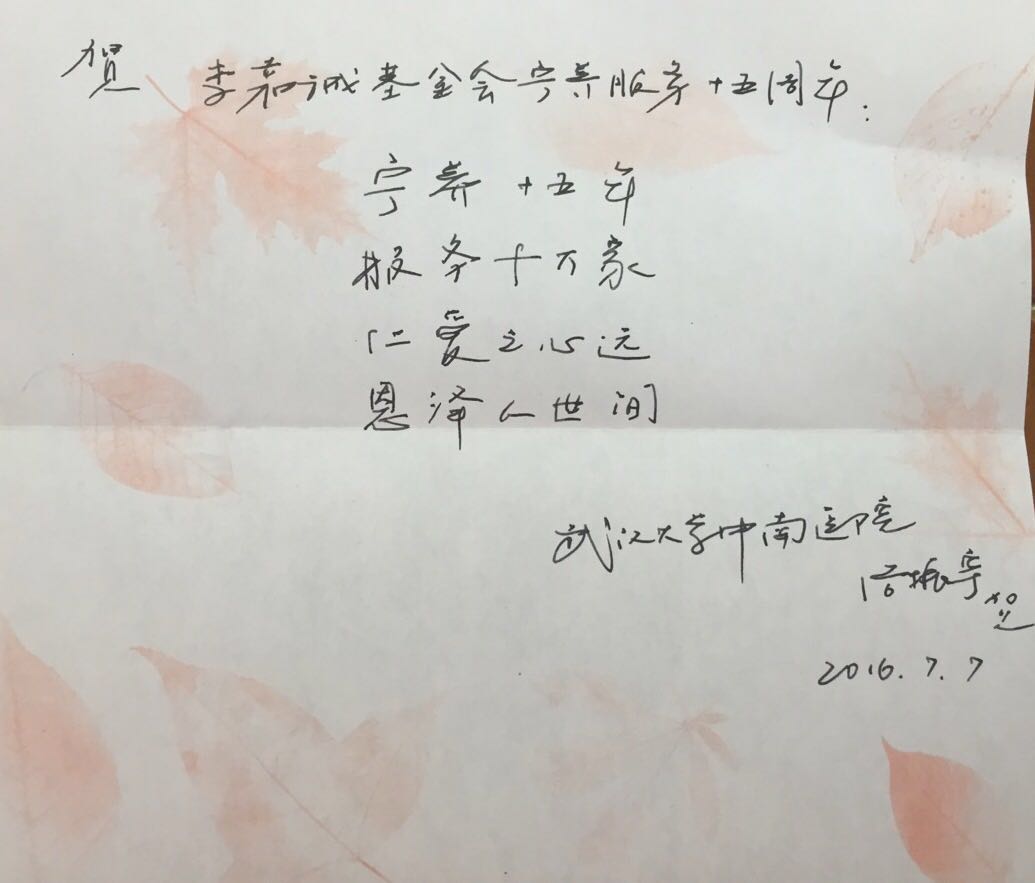 贺 李嘉诚基金会宁养服务十五周年:
宁养十五年
服务十万家
仁爱之心远
恩泽人世间
武汉大学中南医院
2016.7.7